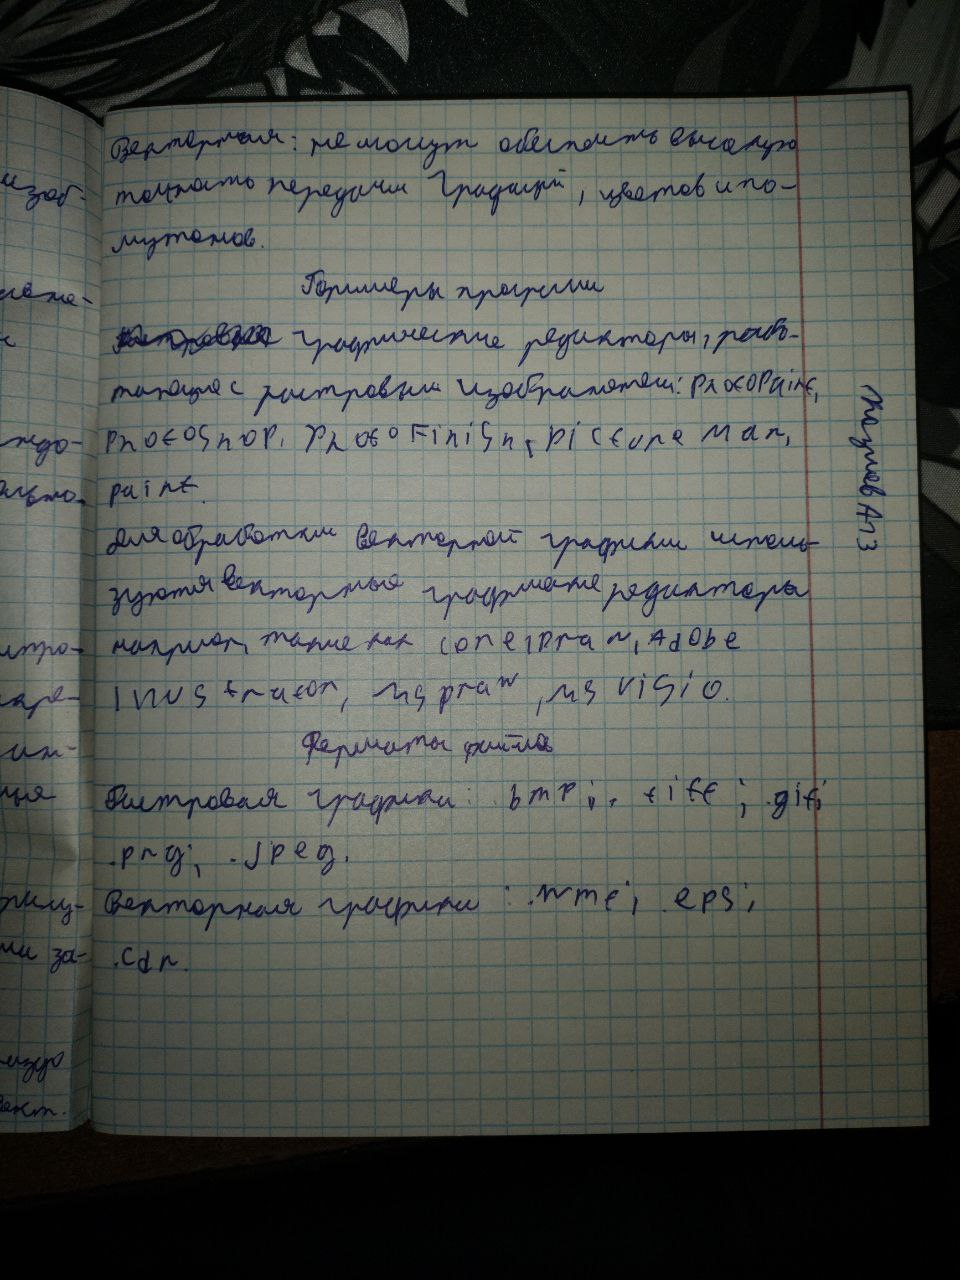 Векторная: не могут обеспечить высокую
точность передачи градаций, цветов и по-
лутонов.
Примеры программ
графические редакторы, рабо-
тающие с растровыми изображениями: PhotoPaint,
PhotoShop, PhotoFinish, Picture Man,
paint.
для обработки векторной графики исполь-
зуются векторные графические редакторы
например, такие как CorelDraw, Adobe
Illustrator, MS Draw, MS Visio.
Форматы файлов
Растровая графика: .bmp; .tiff; .gif;
.png; .jpeg.
Векторная графика: .wmf; .eps;
.cdr.
изоб-
ждо-
ально-
тро-
ми за-